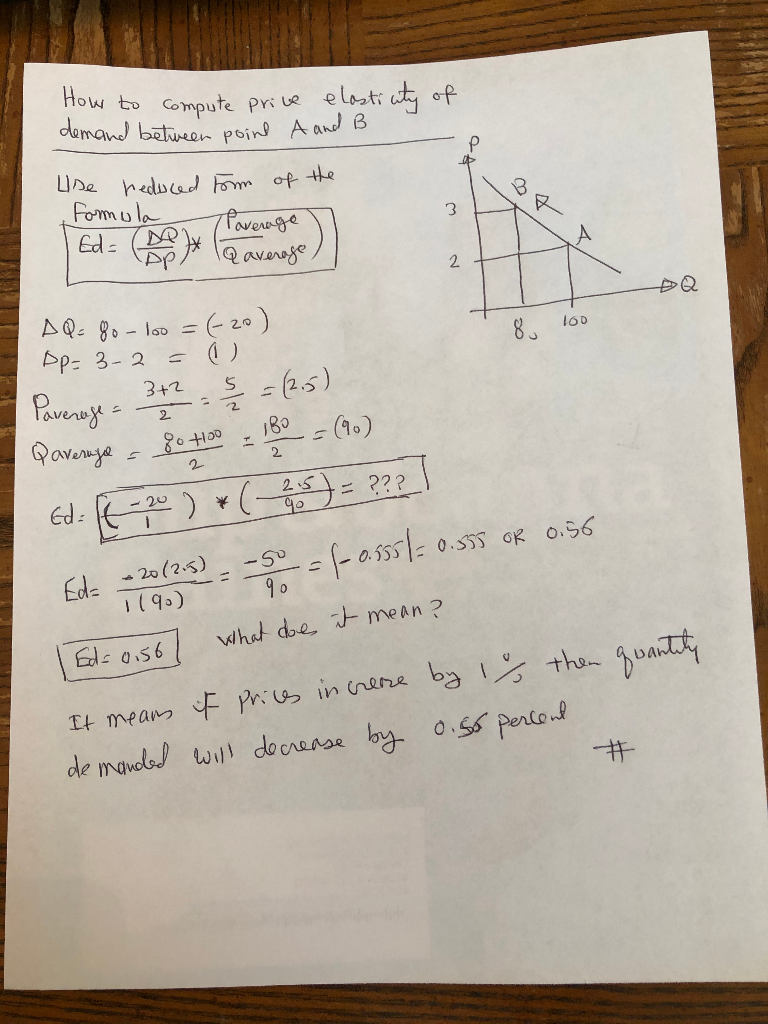 How to compute price elasticity of
demand between point A and B
Use reduced Form of the
Formula
Ed = (ΔQ/ΔP) * (Paverage/Qaverage)
P
3
2
B
A
Q
80
100
ΔQ = 80 - 100 = (-20)
Δp = 3 - 2 = (1)
Paverage = 3+2/2 = 5/2 = (2.5)
Qaverage = 80+100/2 = 180/2 = (90)
Ed = (-20/1) * (2.5/90) = ???
Ed = -20(2.5)/1(90) = -50/90 = |-0.555| = 0.555 OR 0.56
Ed = 0.56 What does it mean?
It means if prices increase by 1% then quantity
demanded will decrease by 0.56 percent
#